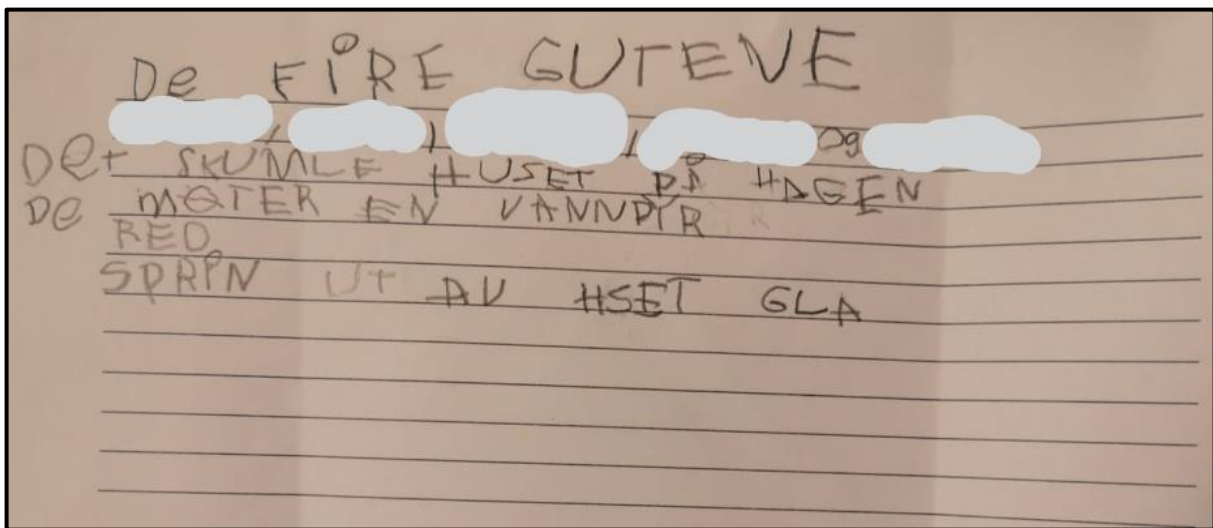 De FiRE GUTEVE
, , , Og
Det SKUMLE HUSET PÅ HAGEN
De MØTER EN VANNPYR
RED
SPRiN UT AV HSET GLA